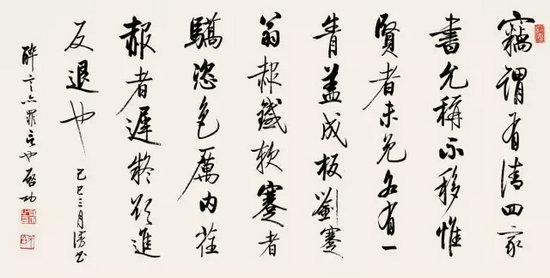 竊謂有清四家
書允稱不移惟
賢者未免各有一
眚蓋成板劉蹇
翁赧鐵軟蹇者
驕恣色厲內荏
赧者遲疑欲進
反退也
己巳三月
醉言
也啟功